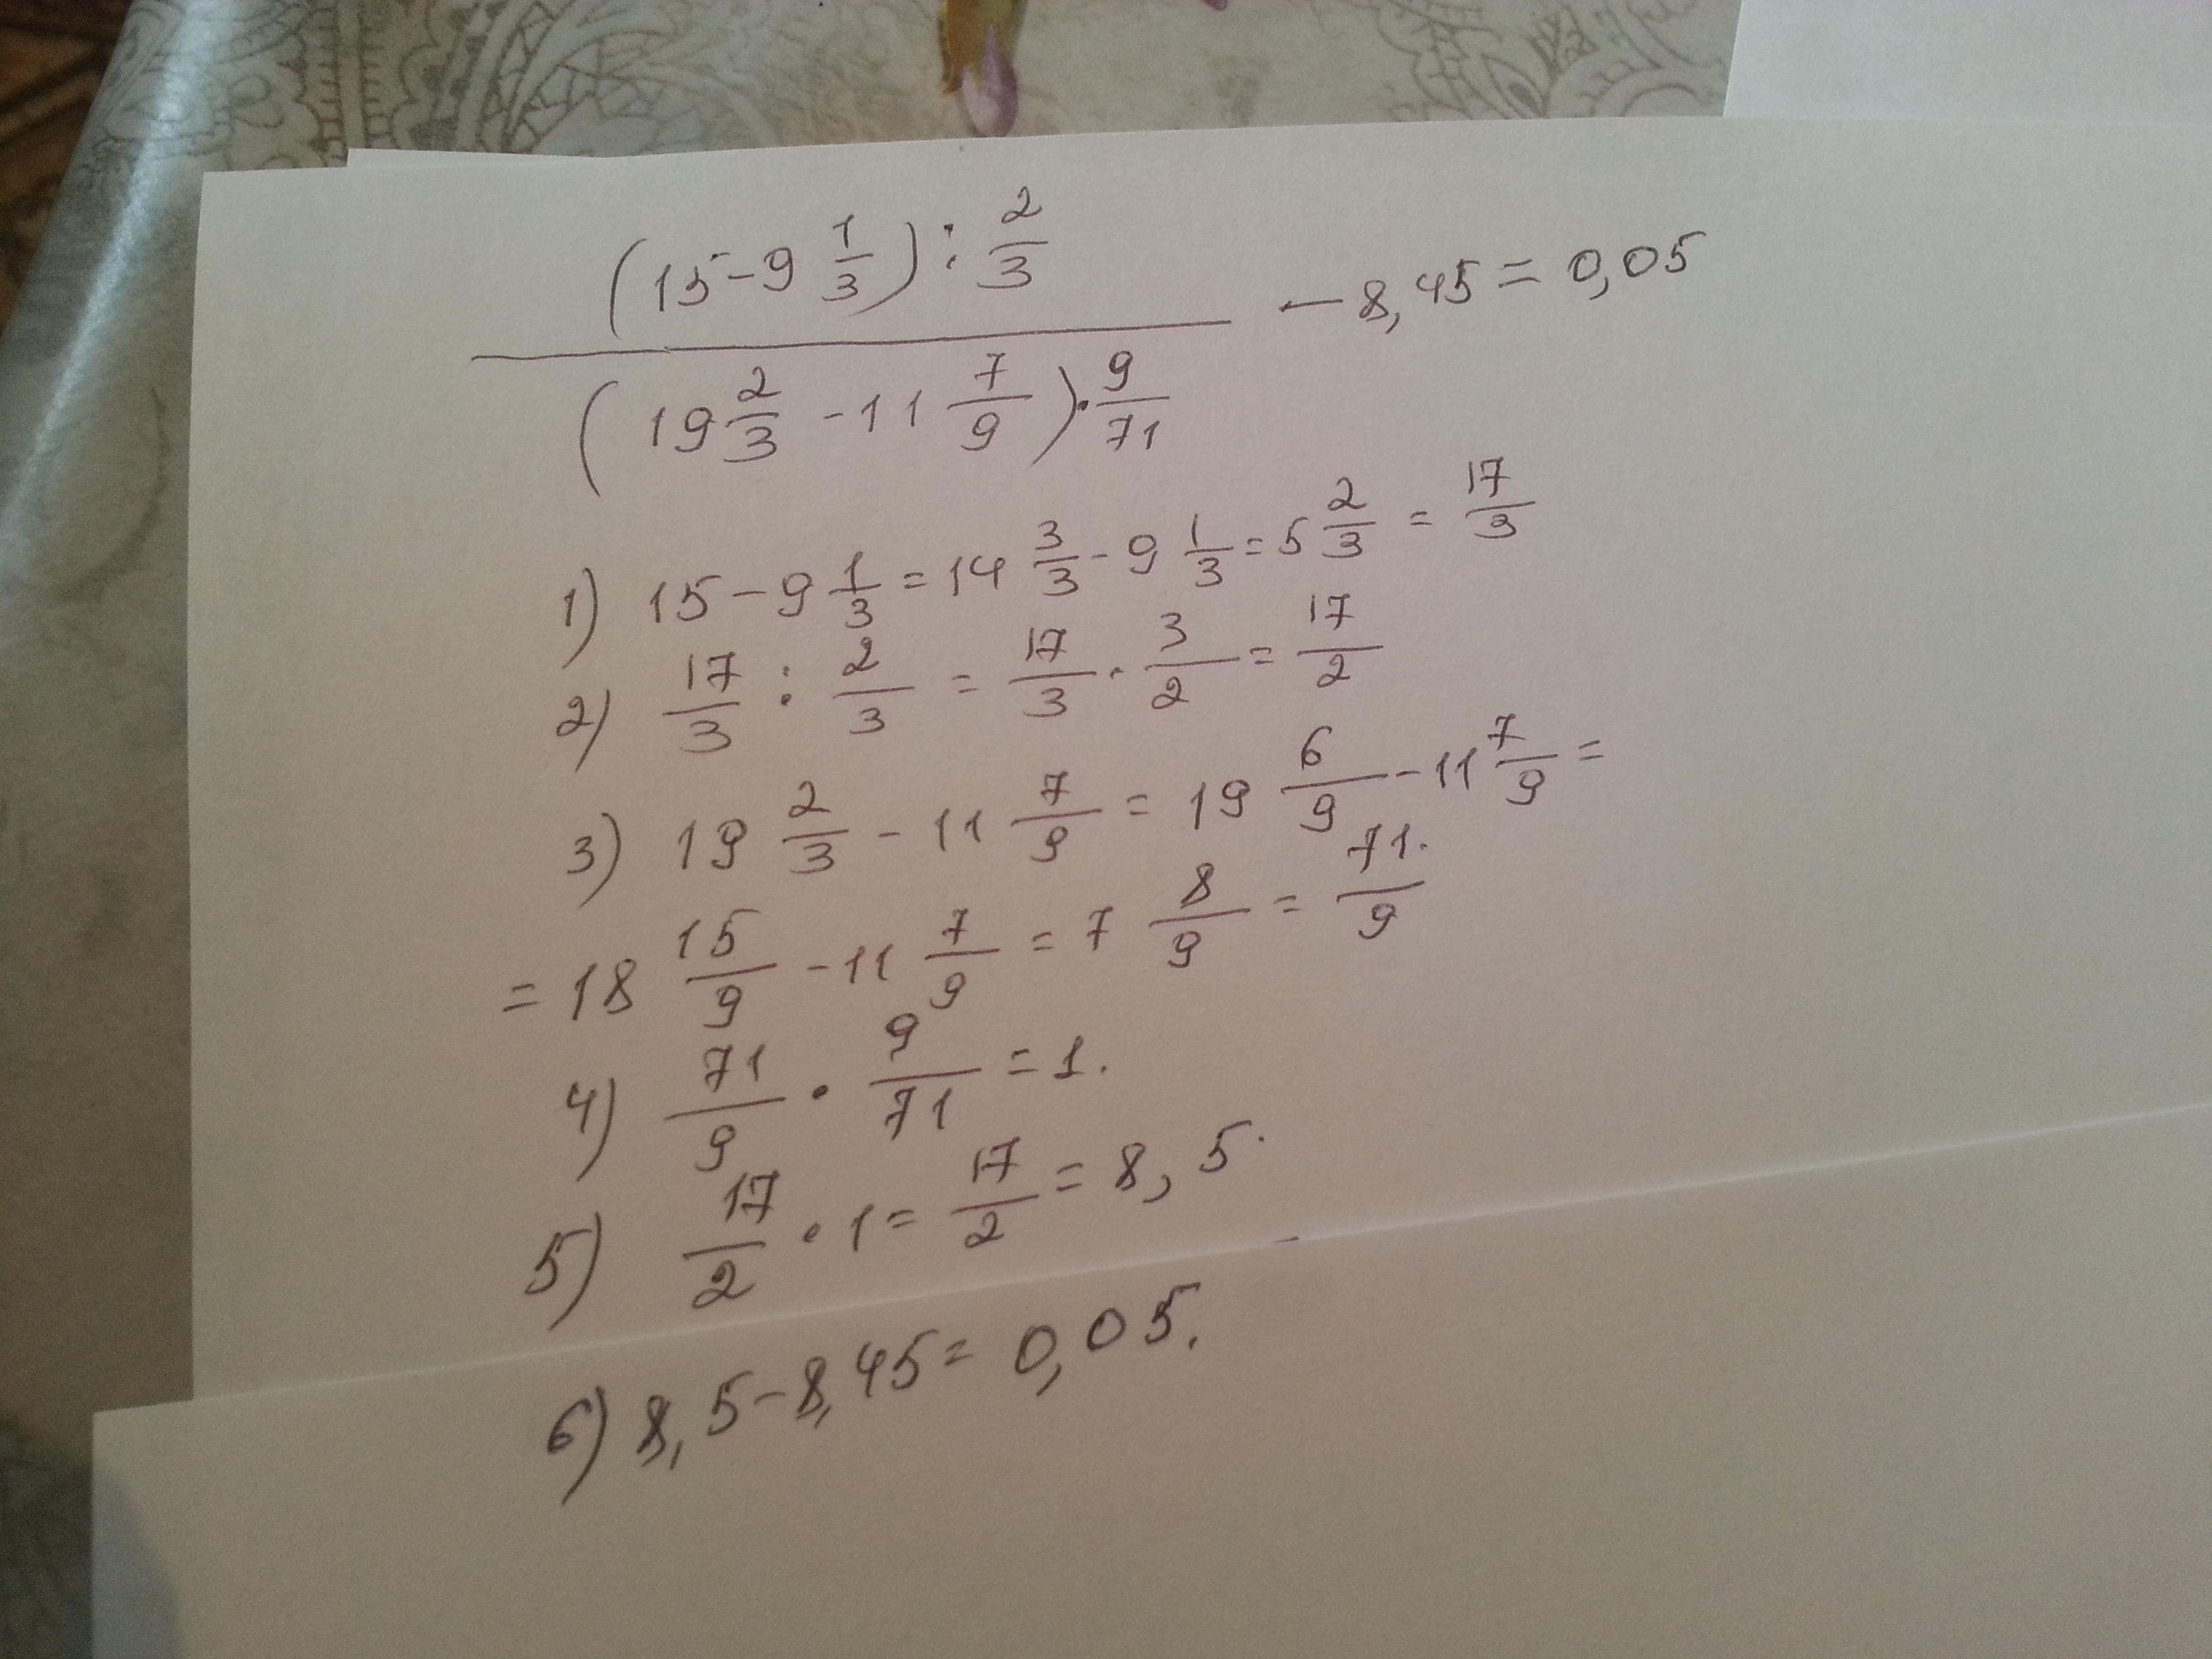 (15-9 1/3) : 2/3
— 8,45 = 0,05
(19 2/3 - 11 7/9) · 9/71
1) 15 - 9 1/3 = 14 3/3 - 9 1/3 = 5 2/3 = 17/3
2) 17/3 : 2/3 = 17/3 · 3/2 = 17/2
3) 19 2/3 - 11 7/9 = 19 6/9 - 11 7/9 =
= 18 15/9 - 11 7/9 = 7 8/9 = 71/9.
4) 71/9 · 9/71 = 1.
5) 17/2 · 1 = 17/2 = 8,5.
6) 8,5 - 8,45 = 0,05.